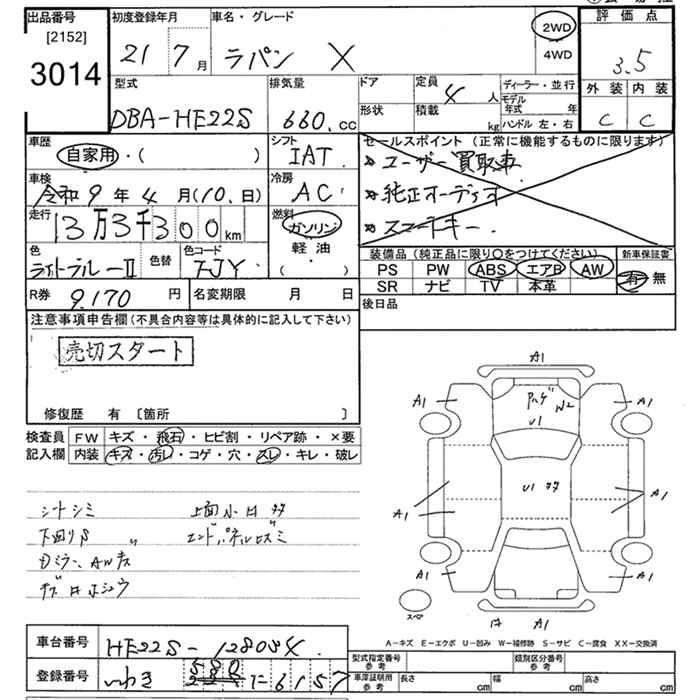 出品番号
[2152]
3014
初度登録年月
21 7月
車名・グレード
ラパン X
2WD
4WD
評価点
3.5
外装 内装
C C
型式
DBA-HE22S
排気量
660.cc
ドア
形状
定員
4人
積載
kg
ディーラー・並行
モデル年式 年
ハンドル 左・右
車歴
自家用・( )
シフト
IAT
セールスポイント(正常に機能するものに限ります)
ユーザー買取車
純正オーディオ
スマートキー
車検
令和9年4月(10.日)
冷房
AC
走行
3万3千300km
燃料
ガソリン
軽油・
( )
色
色替
色コード
ZJY
装備品(純正品に限り○をつけてください)
新車保証書
PS PW ABS エアB AW
SR ナビ TV 本革
有・無
R券
9.170円
名変期限 月 日
後日品
注意事項申告欄(不具合内容等は具体的に記入して下さい)
売切スタート
修復歴 有 [箇所 ]
検査員記入欄
FW キズ・飛石・ヒビ割・リペア跡・×要
内装 キズ・汚れ・コゲ・穴・スレ・キレ・破レ
シートシミ
下回りS
上面小口タタ
エンドパネルロスミ
A1
A1
A1
ハゲ
W2
U1
A1
A1
U1 タタ
A1
A1
A1
スペア
A1
A-キズ E-エクボ U-凹み W-補修跡 S-サビ C-腐食 XX-交換済
車台番号
HE22S-128034
登録番号
いわき 580 に 6157
型式指定番号
参考
類別区分番号
参考
車庫証明用
参考
長さ cm
幅 cm
高さ cm